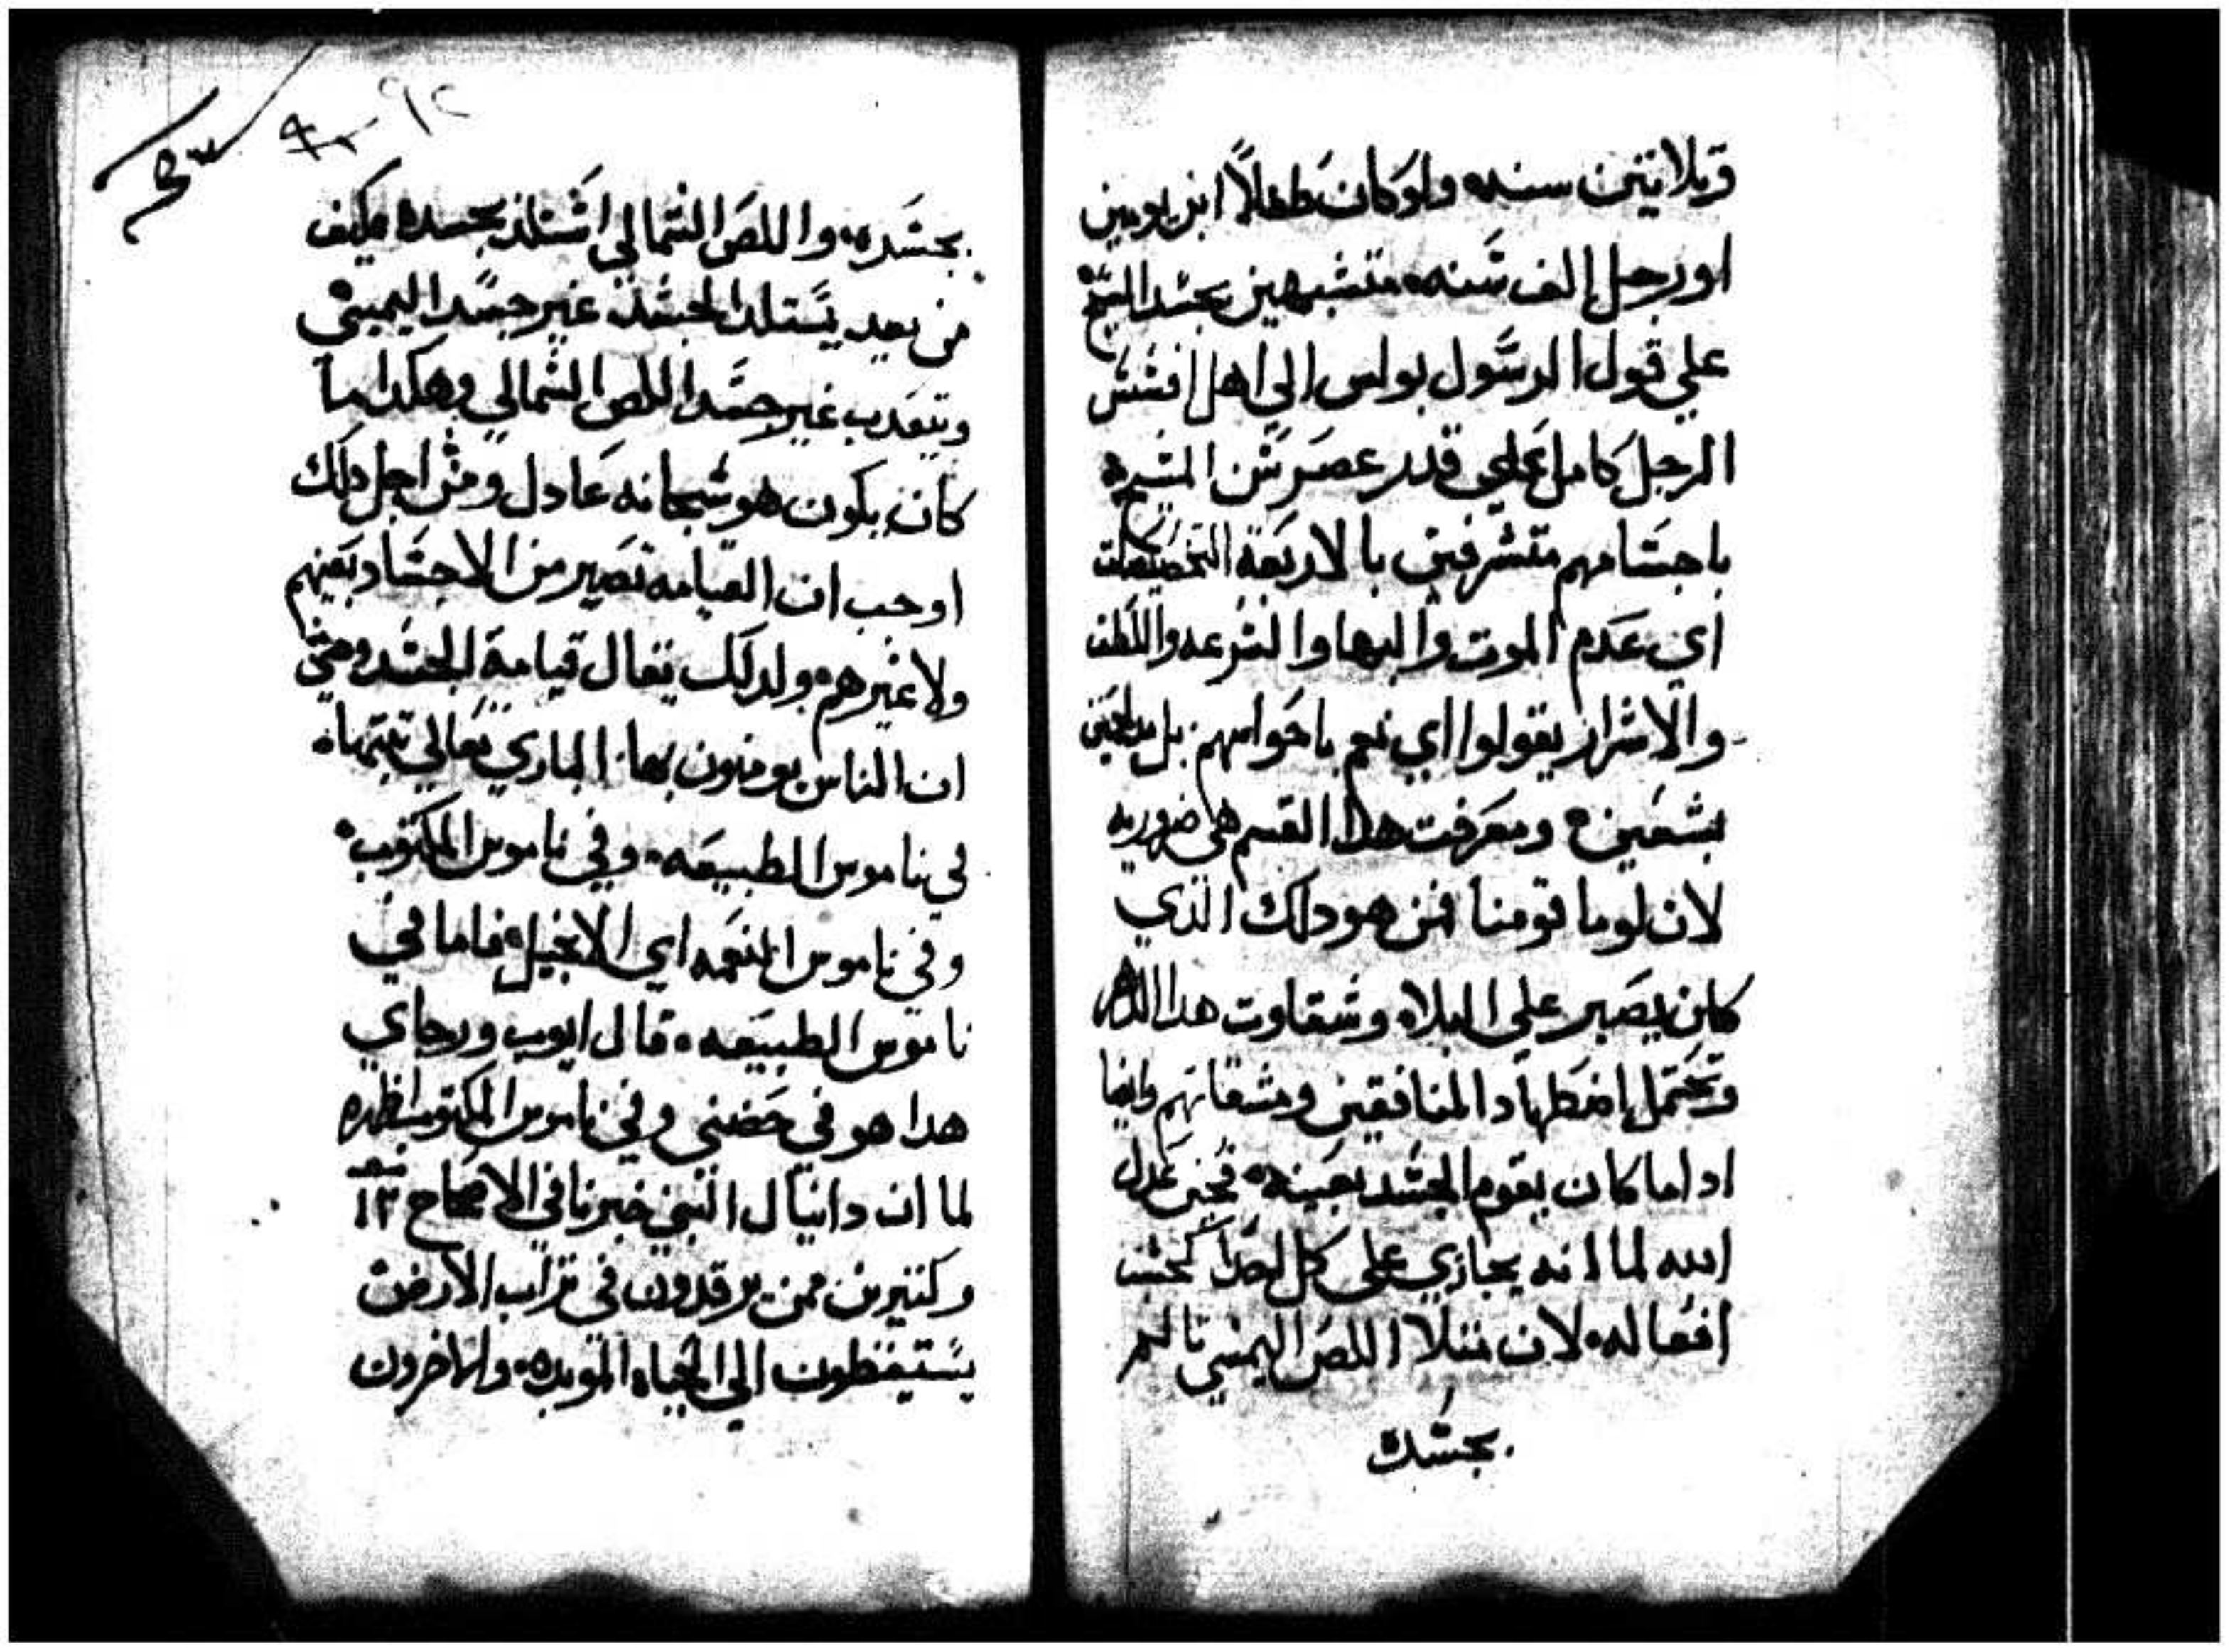 وتلاتين سنه ولو كان طفلاً ابن يومين
او رجل الف سَنه متشبهين بجسد المسَيح
علي قول الرسَول بولس الي اهل افسَسَ
الرجل كامل علي قدر عصر سَن المسَيح
باجسَامهم متشرفين بالاربَعَة التخصيصات
اي عَدم الموت والبها والسَرعه واللطف
والاشرار يقولوا اي نعم باجوامهم بل
بشعَين ومعَرفت هدا القسم هي ضروريه
لان لو ما تومنا فمن هو دلك الذي
كان يصَبر علي البلاه وشقاوت هدا الدهر
وتحَتمل اضَطهاد المنافقين ومشقاتهم وايضا
ادا ما كان يقوم الجسَد بعَينه فاين عَدل
الله لما انه يجازي علي كل احد كحسَب
افعَاله لان متلا اللصَ اليمين تالم
بجسَده
بجسَده واللصَ الشمالي اسَتلد بجسده فكيف
من بعد يسَتلد الجسَد غير جسَد اليمين
وتتعَدب غير جسَد اللص الشمالي وهكدا ما
كان يكون هو سَبحانه عَادل ومن اجل دلك
اوجب ان القيامه تصَير من الاجسَاد بعَينهم
ولا غيرهم ولدلك يقال قيامة الجسَد وحتي
ان الناس يومنون بها الباري تعَالي تبتها
في ناموس الطبيعَه وفي ناموس المكتوب
وفي ناموس النعَمه اي الانجيل فاما في
ناموس الطبيعَه قال ايوب ورجاي
هدا هو في حَضني وفي ناموس المكتوب اظهره
لما ان دانيال النبي خبرنا في الاصحاح ١٢
وكتيرين ممن يرقدون في تراب الارض
يسَتيقظون الي الحَياه الموبده والاخرون